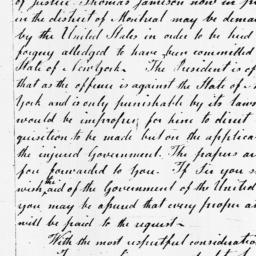 of Justice. Thomas Jamieson now in
in the district of Montreal may be dema
by the United States in order to be had
forgery alledged to have been committed
State of New York. The President is of
that as the offence is against the State of
York and is only punishable by its laws
would be improper for him to direct
quisition to be made but on the applica
the injured Government. The papers ar
fore forwarded to you. If Sir you s
wish the aid of the Government of the United
you may be assured that every proper a
will be paid to the request.
With the most respectful consideratio